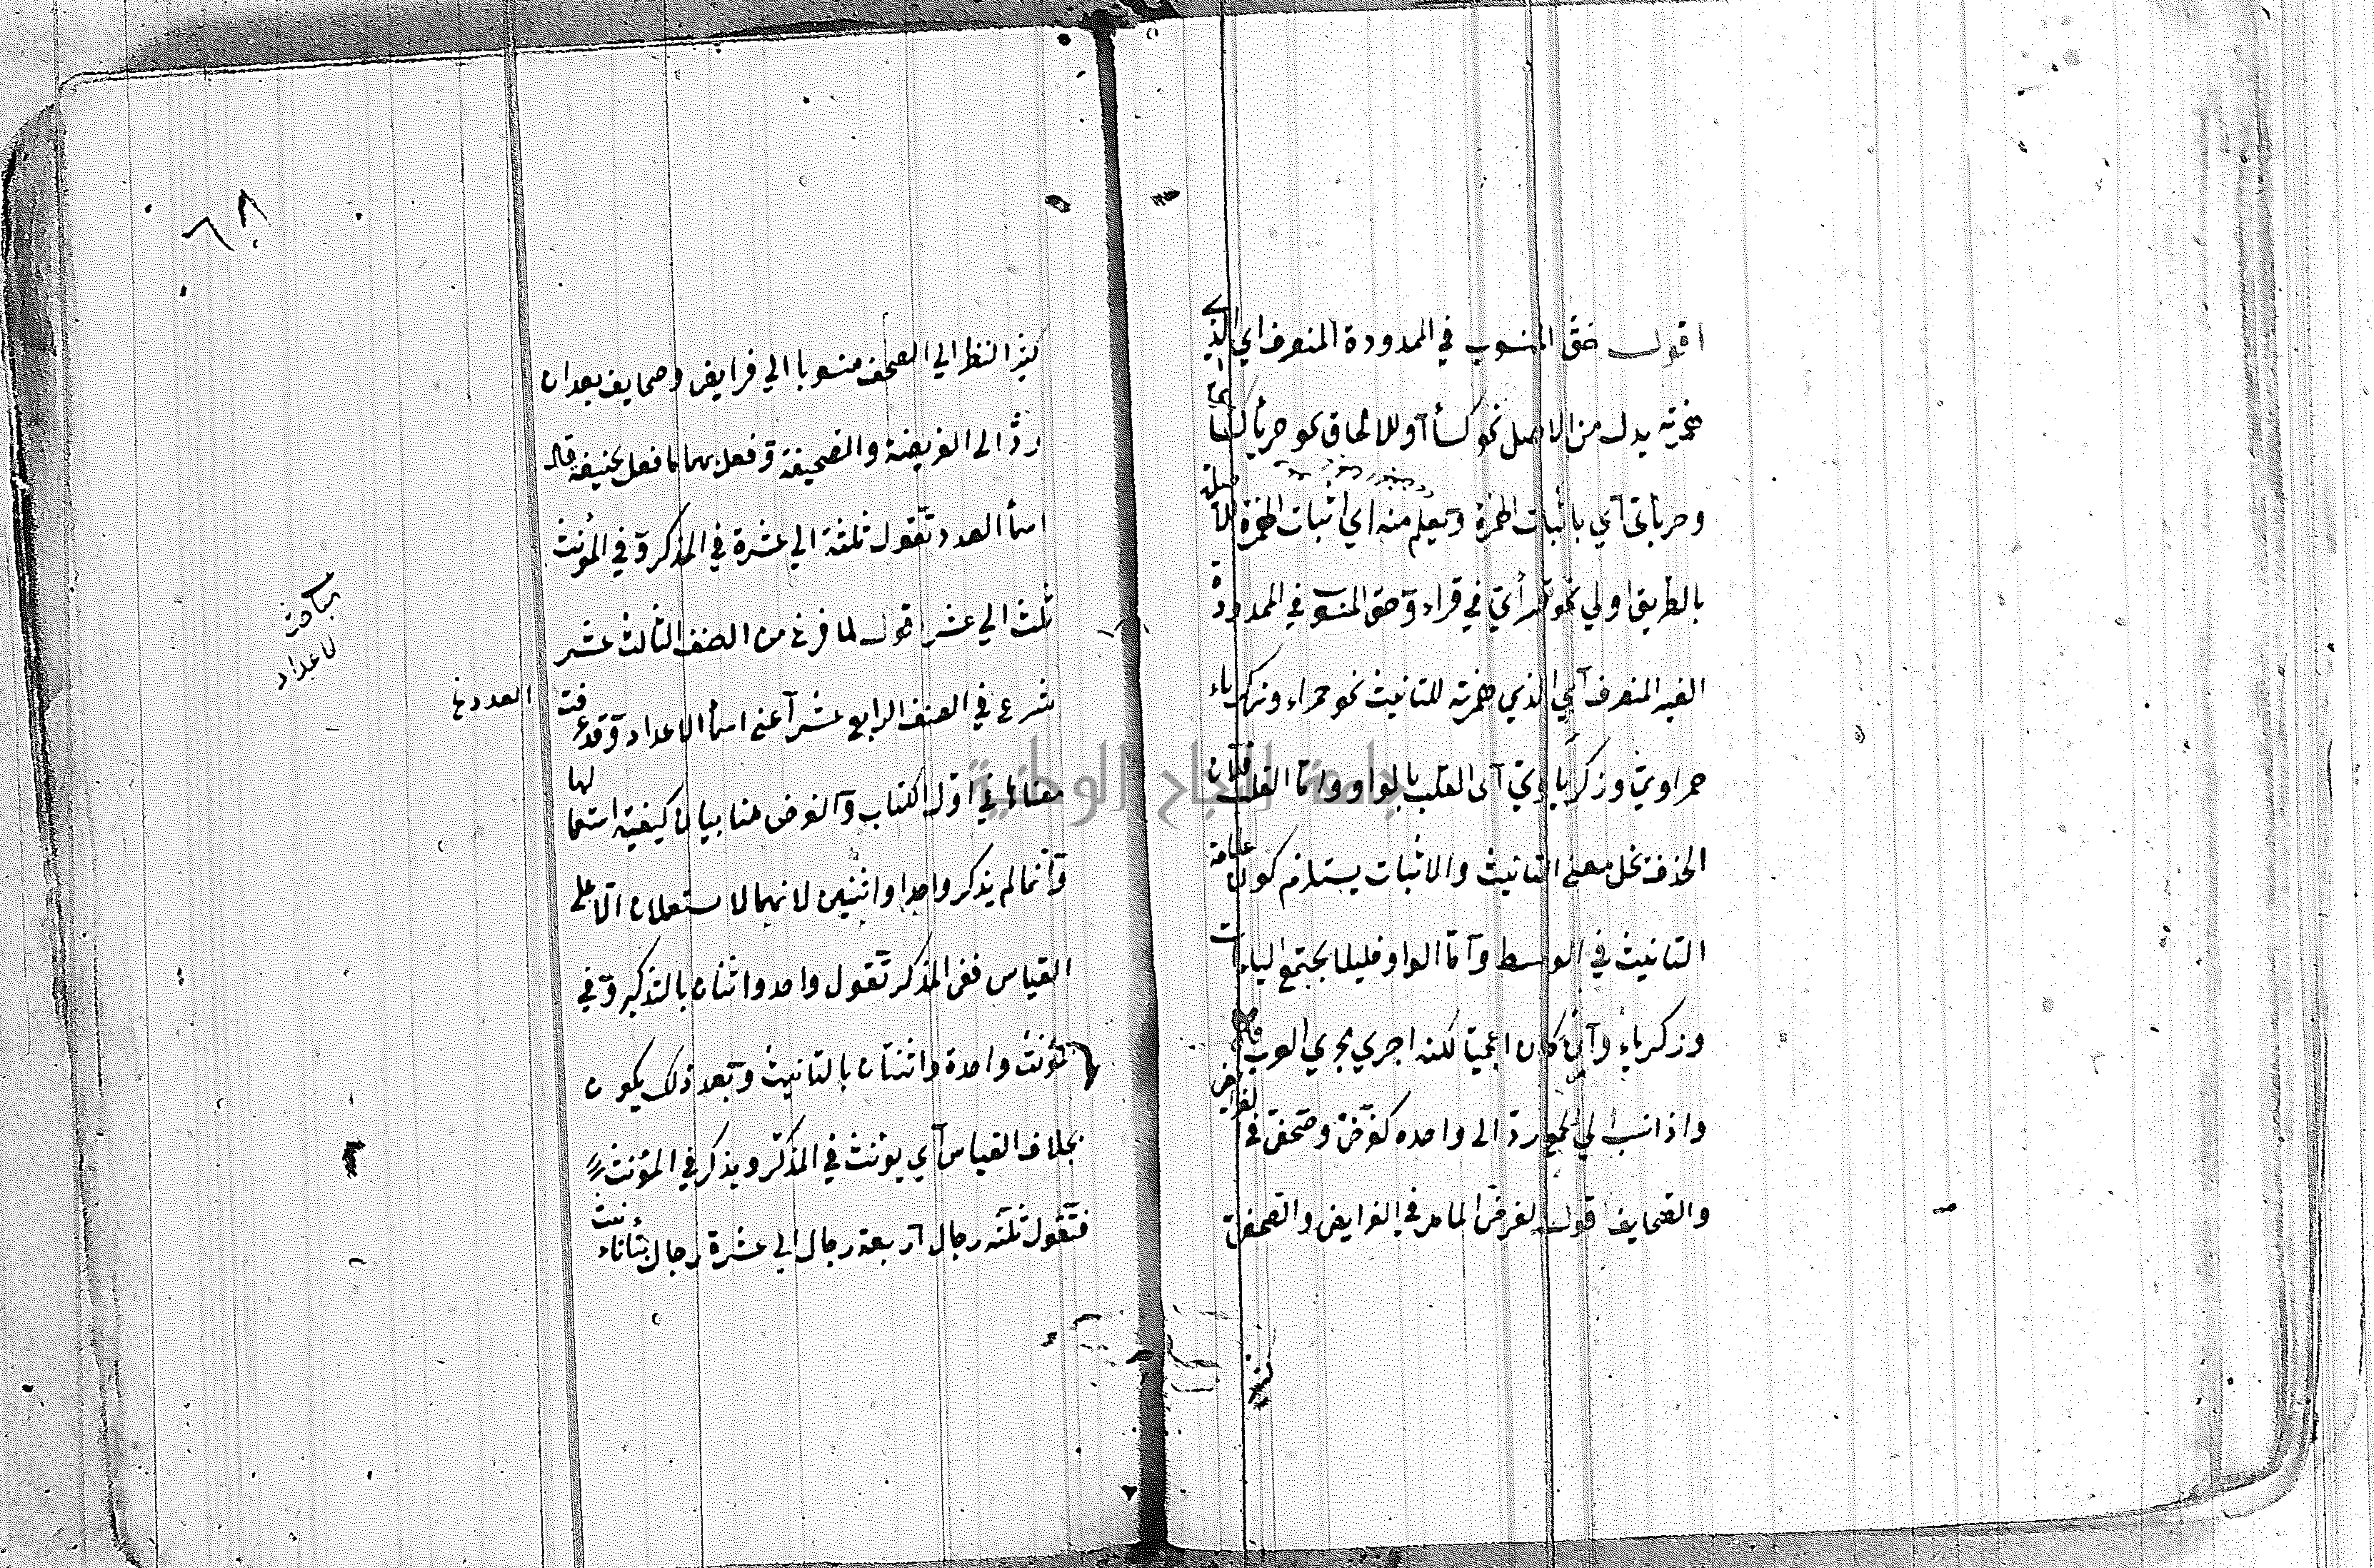 اقول حق المنسوب في الممدودة المنصرف اي الذي
همزته بدل من الاصل نحو كسأ او للالحاق نحو حربأ كسائي
وحربائي اي باثبات الهمزة ويعلم منه اي اثبات الهمزة الاصلية
بالطريق اولي نحو قرأئي في قراء وحق المنسوب في الممدودة
الغير المنصرف اي الذي همزته للتانيث نحو حمراء وزكرياء
حمراوي وزكرياوي اى القلب بالواو واما القلب فلان
الحذف يخل معني التانيث والاثبات يستلزم كون علامة
التانيث في الوسط واما الواو فليلا يجتمع الياءات
وزكرياء وان كان اعجميا لكنه اجري مجري العربي قال
واذا نسب الي الجمع رد الى واحده كفرضي وصحفي في الفرايض
والصحايف اقول الفرضي الماهر في الفرايض والصحفي
كثير النظر الي الصحف منسوبا الي فرايض وصحايف بعد ان
رد الى الفريضة والصحيفة وفعل بهما ما فعل بحنيفة قال
اسأ العدد تقول ثلثة الي عشرة في المذكر وفي المؤنث
ثلث الي عشر اقول لما فرغ من الصنف الثالث عشر
شرع في الصنف الرابع عشر اعني اسأ الاعداد وقد عرفت
معناها في اول الكتاب والغرض هنا بيان كيفية استعمالها
وانما لم يذكر واحدا واثنين لانهما لا يستعملان الا على
القياس ففي المذكر تقول واحد واثنان بالتذكير وفي
المؤنث واحدة واثنتان بالتانيث وبعد ذلك يكون
بخلاف القياس اي يؤنث في المذكر ويذكر في المؤنث
فتقول ثلثة رجال اربعة رجال الي عشرة رجال بتاء التانيث
مباحث
الاعداد
العدد
٦٨
جامعة النجاح الوطنية